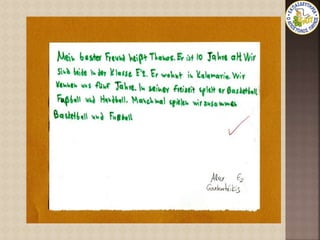 Mein bester Freund heißt Thomas. Er ist 10 Jahre alt. Wir
sind beide in der Klasse E'2. Er wohnt in Kalamaria. Wir
kennen uns fünf Jahre. In seiner Freizeit spielt er Basketball,
Fußball und Handball. Manchmal spielen wir zusammen
Basketball und Fußball
E2